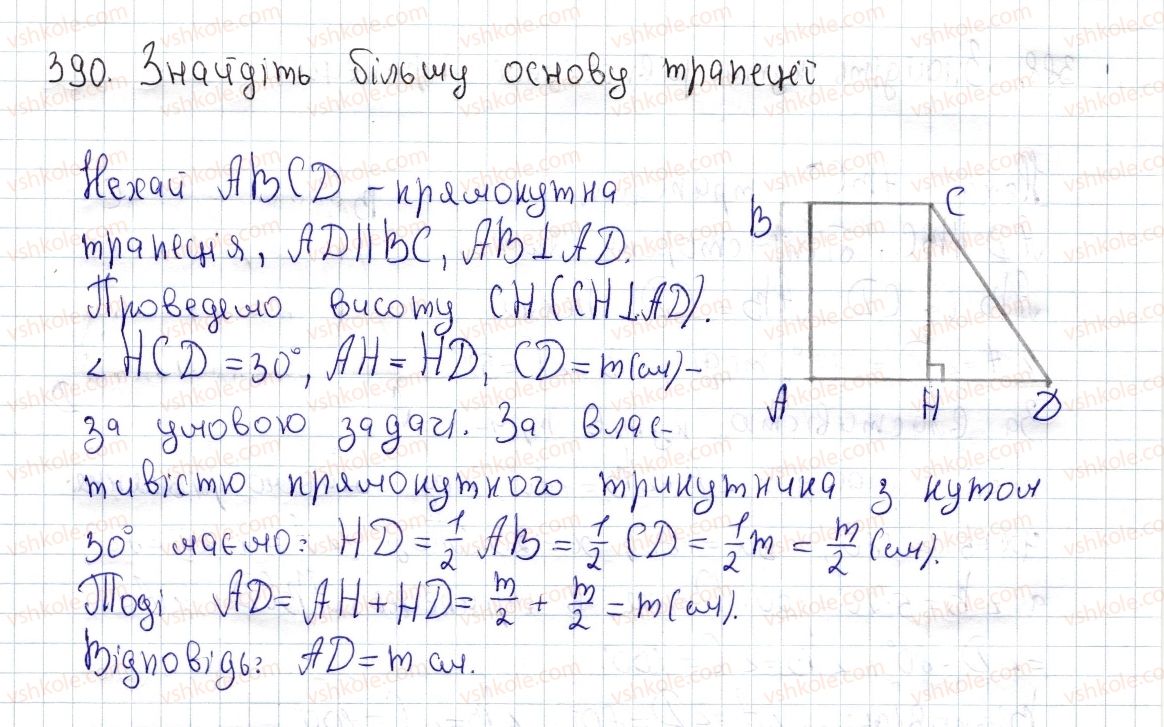 390. Знайдіть більшу основу трапеції
Нехай ABCD – прямокутна
трапеція, AD||BC, AB⊥AD.
Проведемо висоту CH (CH⊥AD).
∠HCD = 30°, AH = HD, CD = m (см) –
за умовою задачі. За влас-
тивістю прямокутного трикутника з кутом
30° маємо: HD = 1/2 AB = 1/2 CD = 1/2 m = m/2 (см).
Тоді AD = AH + HD = m/2 + m/2 = m (см).
Відповідь: AD = m см.
B
C
A
H
D